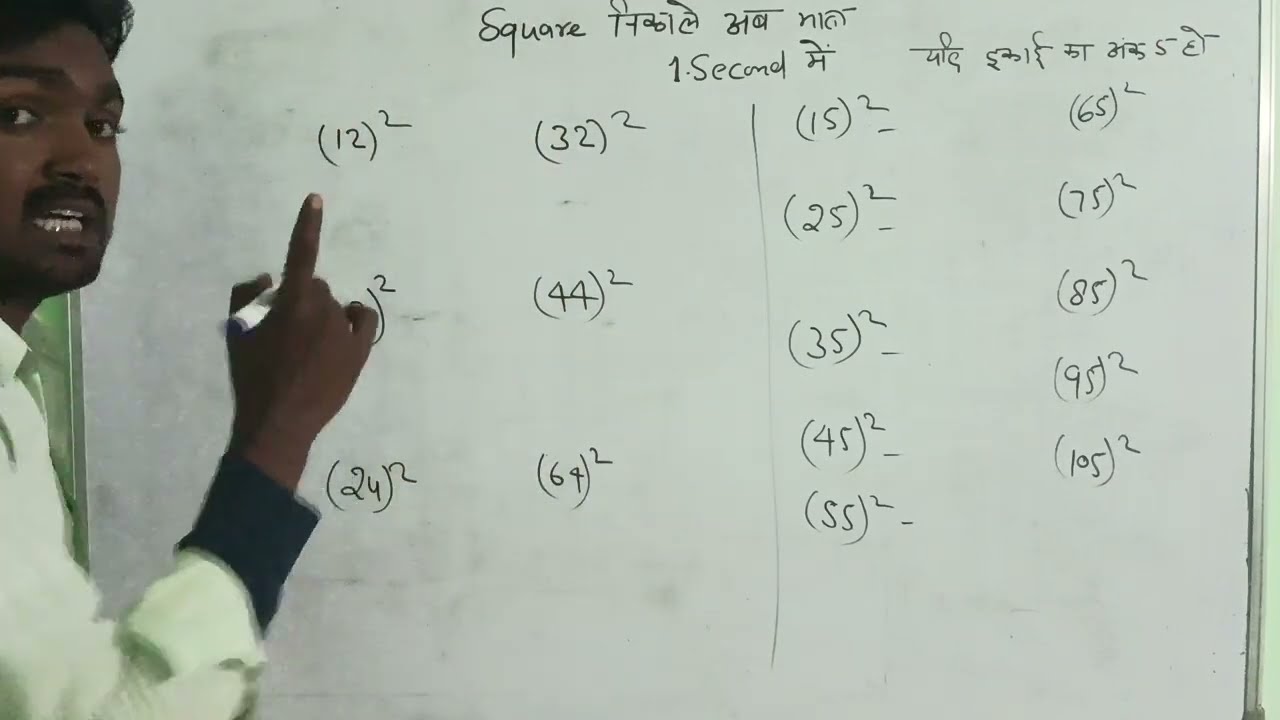 Square निकाले अब मात्र
1.Second में
यदि इकाई का अंक 5 हो
(12)² (32)²
(44)²
(24)² (64)²
(15)² = (65)²
(25)² = (75)²
(35)² = (85)²
(45)² = (95)²
(55)² - (105)²